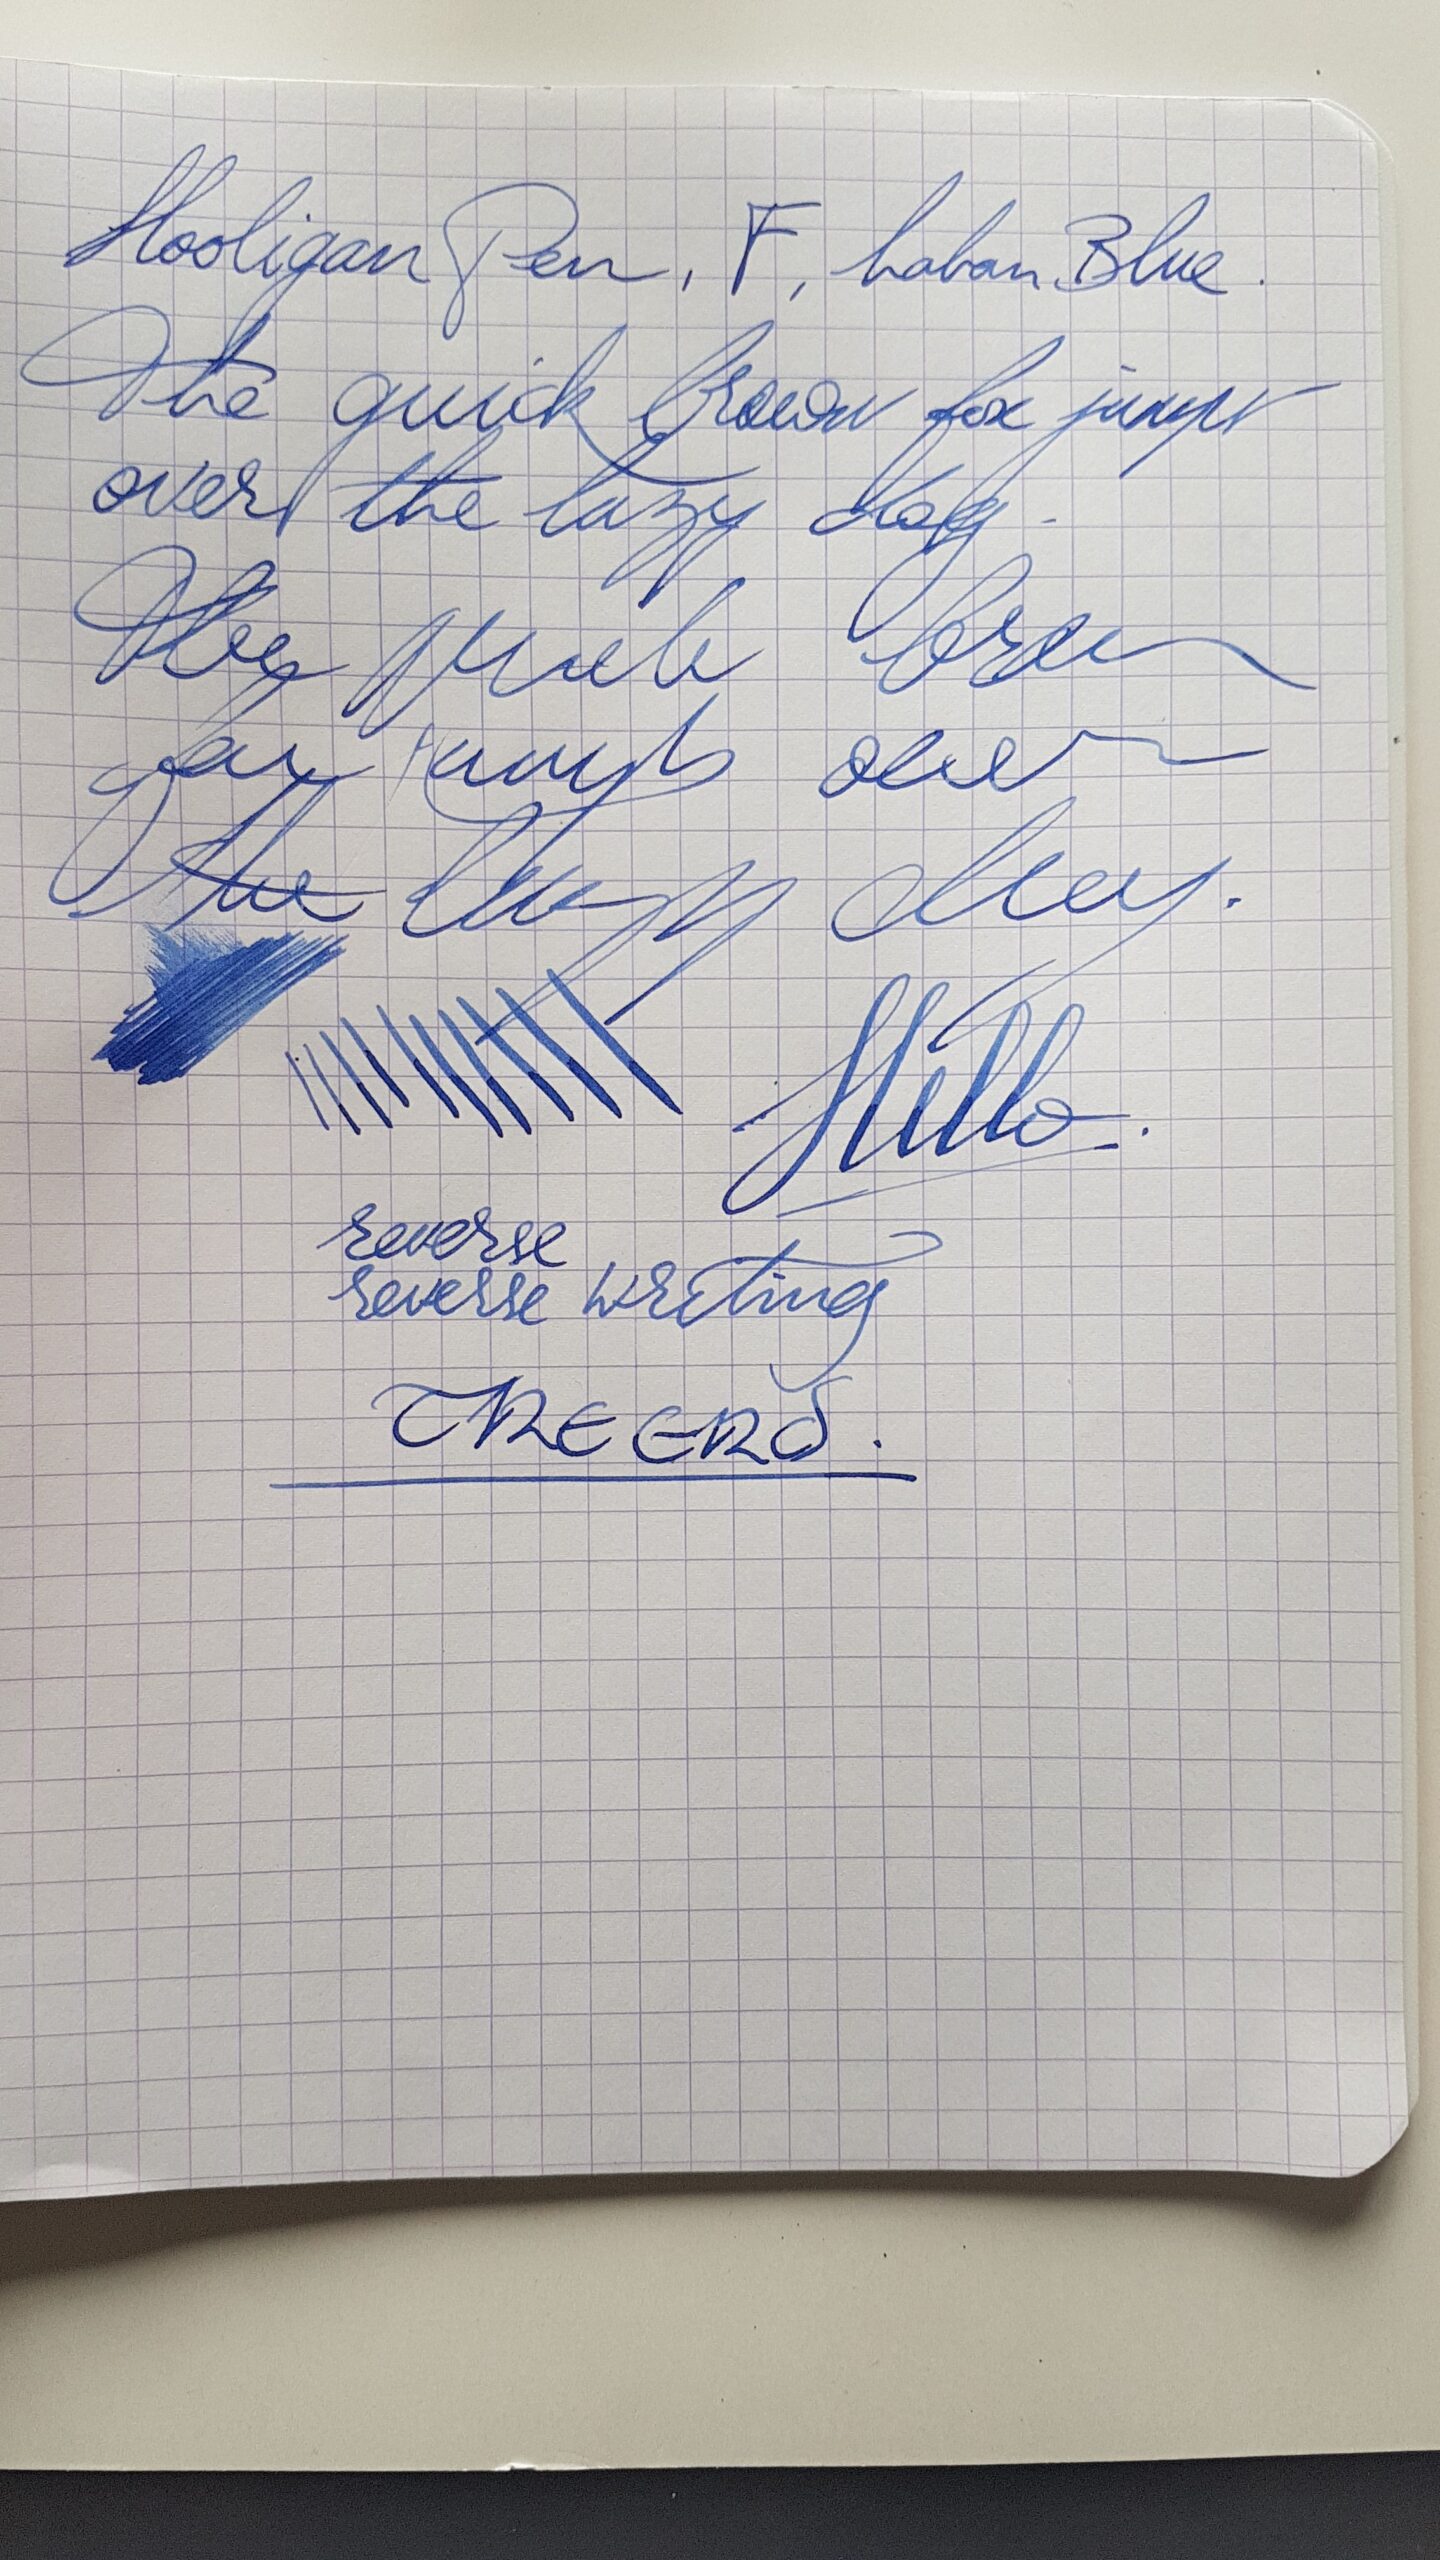 Hooligan Pen, F, Laban Blue.
The quick brown fox jumps
over the lazy dog.
The quick brown
fox jumps over
the lazy dog.
Hello.
reverse
reverse writing